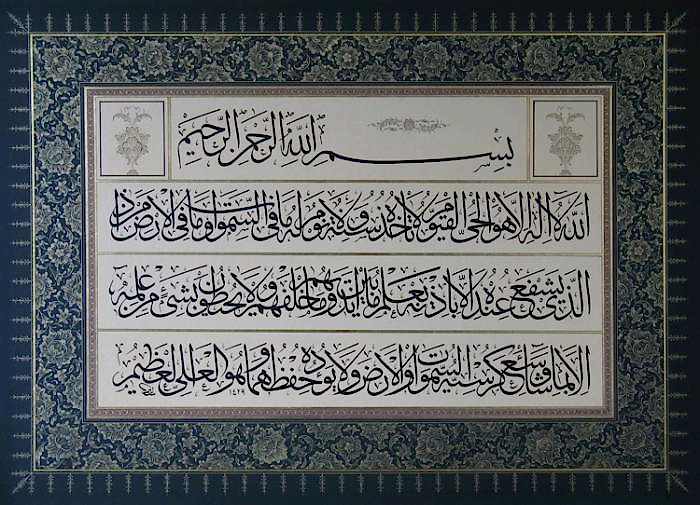 بسم الله الرحمن الرحيم
الله لا اله الا هو الحي القيوم لا تأخذه سنة ولا نوم له ما في السموات وما في الارض من ذا
الذي يشفع عنده الا باذنه يعلم ما بين ايديهم وما خلفهم ولا يحيطون بشئ من علمه
الا بما شاء وسع كرسيه السموات والارض ولا يؤده حفظهما وهو العلي العظيم ١٤٢٩